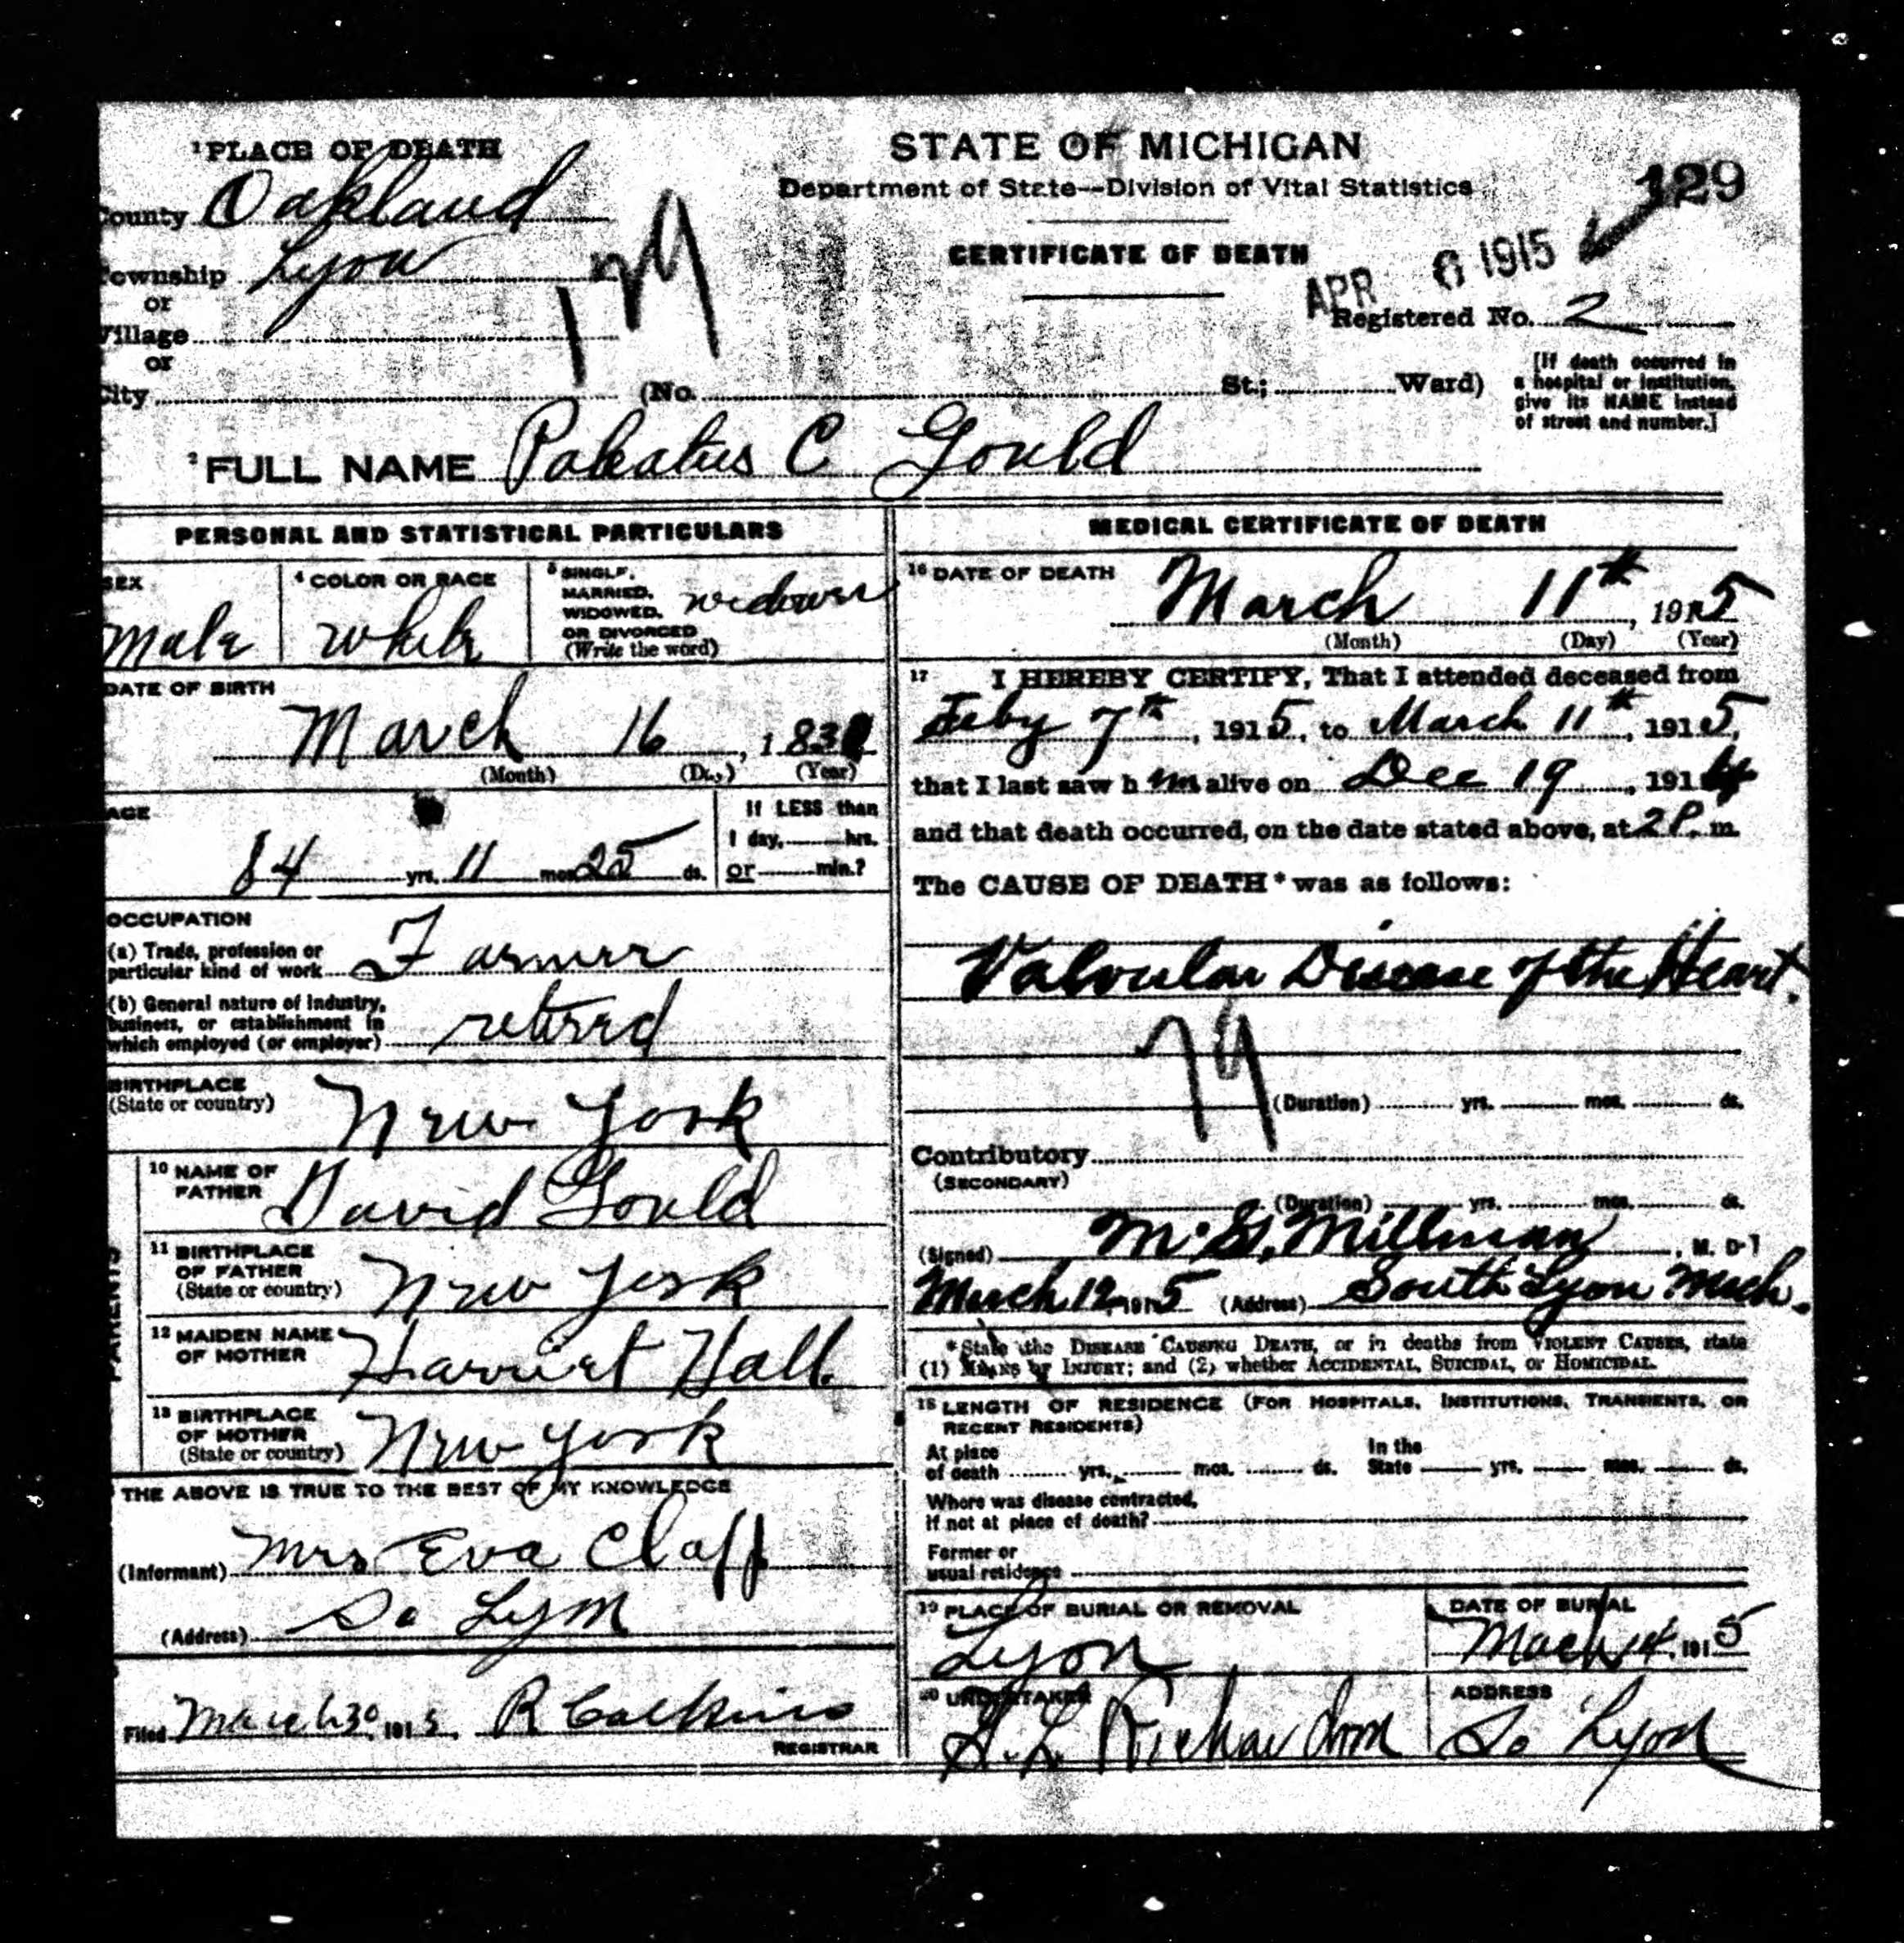 1 PLACE OF DEATH
County Oakland
Township Lyon
or
Village
or
City (No. St.; Ward)
129
STATE OF MICHIGAN
Department of State—Division of Vital Statistics
129
CERTIFICATE OF DEATH
APR 6 1915
Registered No. 2
[If death occurred in
a hospital or institution,
give its NAME instead
of street and number.]
2 FULL NAME C Gould
PERSONAL AND STATISTICAL PARTICULARS
SEX
Male
4 COLOR OR RACE
White
5 SINGLE,
MARRIED,
WIDOWED,
OR DIVORCED
(Write the word)
widower
DATE OF BIRTH
March 16, 183
(Month) (Day) (Year)
AGE
84 yrs. 11 mos. 25 ds.
If LESS than
1 day, hrs.
or min.?
OCCUPATION
(a) Trade, profession or
particular kind of work Farmer
(b) General nature of industry,
business, or establishment in
which employed (or employer) retired
BIRTHPLACE
(State or country) New York
PARENTS
10 NAME OF
FATHER David Gould
11 BIRTHPLACE
OF FATHER
(State or country) New York
12 MAIDEN NAME
OF MOTHER Harriet Hall
13 BIRTHPLACE
OF MOTHER
(State or country) New York
THE ABOVE IS TRUE TO THE BEST OF MY KNOWLEDGE
(Informant) Mrs Eva Clapp
(Address) So Lyon
Filed March 30, 1915, R Calkins
REGISTRAR
MEDICAL CERTIFICATE OF DEATH
16 DATE OF DEATH
March 11th, 1915
(Month) (Day) (Year)
17 I HEREBY CERTIFY, That I attended deceased from
Feby 7th, 1915, to March 11th, 1915,
that I last saw him alive on Dec 19, 1914
and that death occurred, on the date stated above, at 2 P. m.
The CAUSE OF DEATH* was as follows:
Valvular Disease of the Heart.
79
(Duration) yrs. mos. ds.
Contributory
(SECONDARY)
(Duration) yrs. mos. ds.
(Signed) M. G. Millman, M. D.
March 12, 1915 (Address) South Lyon Mich.
*State the DISEASE CAUSING DEATH, or in deaths from VIOLENT CAUSES, state
(1) MEANS OF INJURY; and (2) whether ACCIDENTAL, SUICIDAL, or HOMICIDAL.
18 LENGTH OF RESIDENCE (FOR HOSPITALS, INSTITUTIONS, TRANSIENTS, OR
RECENT RESIDENTS)
At place
of death yrs. mos. ds.
In the
State yrs. mos. ds.
Where was disease contracted,
if not at place of death?
Former or
usual residence
19 PLACE OF BURIAL OR REMOVAL
Lyon
DATE OF BURIAL
March 14, 1915
20 UNDERTAKER
H. L. Richardson
ADDRESS
So Lyon